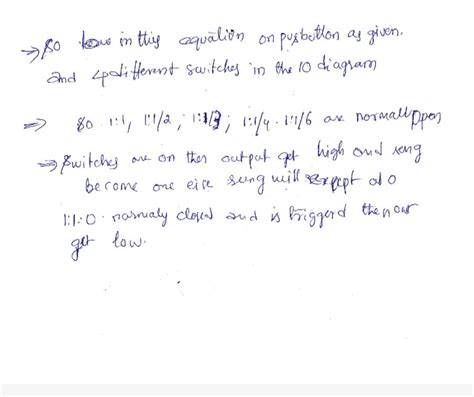 → So in this equation on pushbutton as given.
and 4 different switches in the 10 diagram
⇒ So 1:1, 1:1/2, 1:1/3, 1:1/4 . 1:1/6 are normall open
⇒ Switches are on then output get high and
become one will at 0
1:1:0 . normaly closed and is triggerd then
get low.